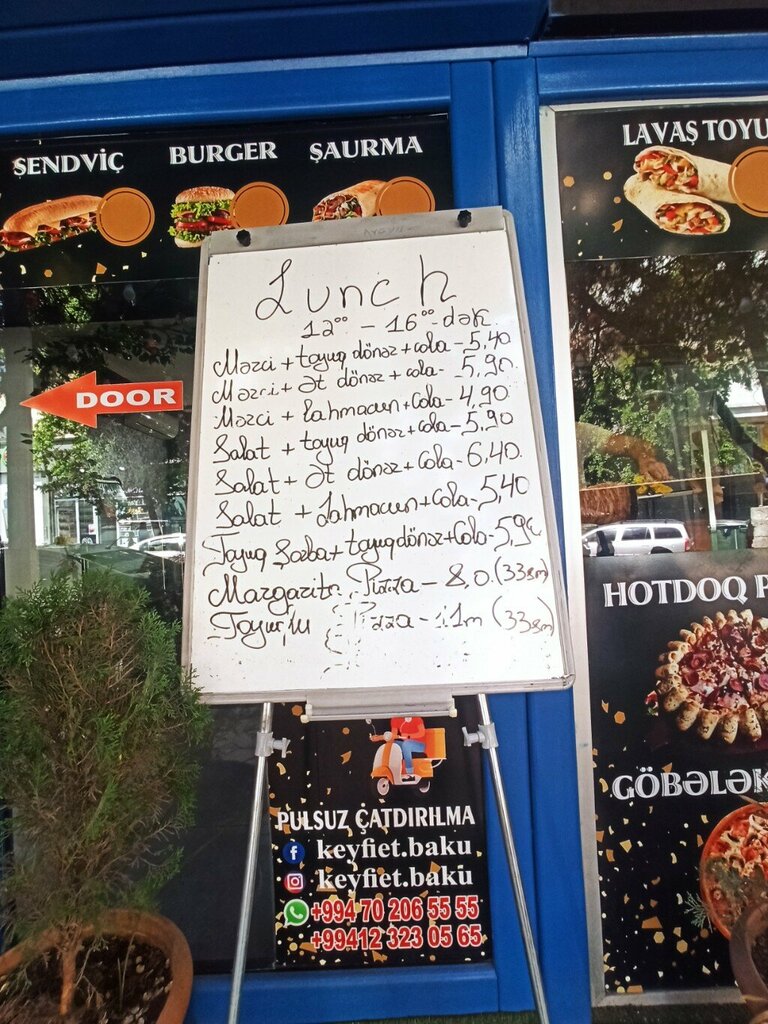 ŞENDVİÇ
BURGER
ŞAURMA
LAVAŞ TOYU
Lunch
12⁰⁰ - 16⁰⁰-dək
Mərci + toyuq dönər + cola - 5,40
Mərci + Ət dönər + cola - 5,90
Mərci + Lahmacun + Cola - 4,90
Salat + toyuq dönər + cola - 5,90
Salat + Ət dönər + Cola - 6,40.
Salat + Lahmacun + Cola - 5,40
Toyuq Şorba + toyuq dönər + Cola - 5,90
Margarita Pizza - 8,0 (33sm)
Toyuqlu Pizza - 11m (33sm)
DOOR
HOTDOQ P
GÖBƏLƏK
PULSUZ ÇATDIRILMA
keyfiet.baku
keyfiet.baku
+994 70 206 55 55
+99412 323 05 65